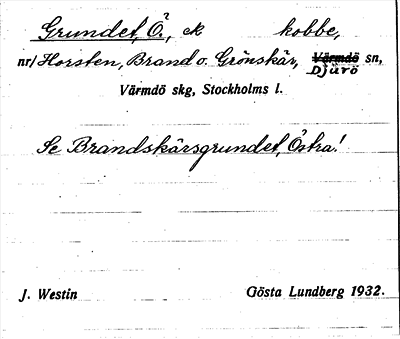 Grundet, Ö?, ek kobbe,
nr/Horsten, Brand o. Grönskär, Värmdö sn,
Djurö
Värmdö skg, Stockholms l.
Se Brandskärsgrundet, Östra!
J. Westin Gösta Lundberg 1932.